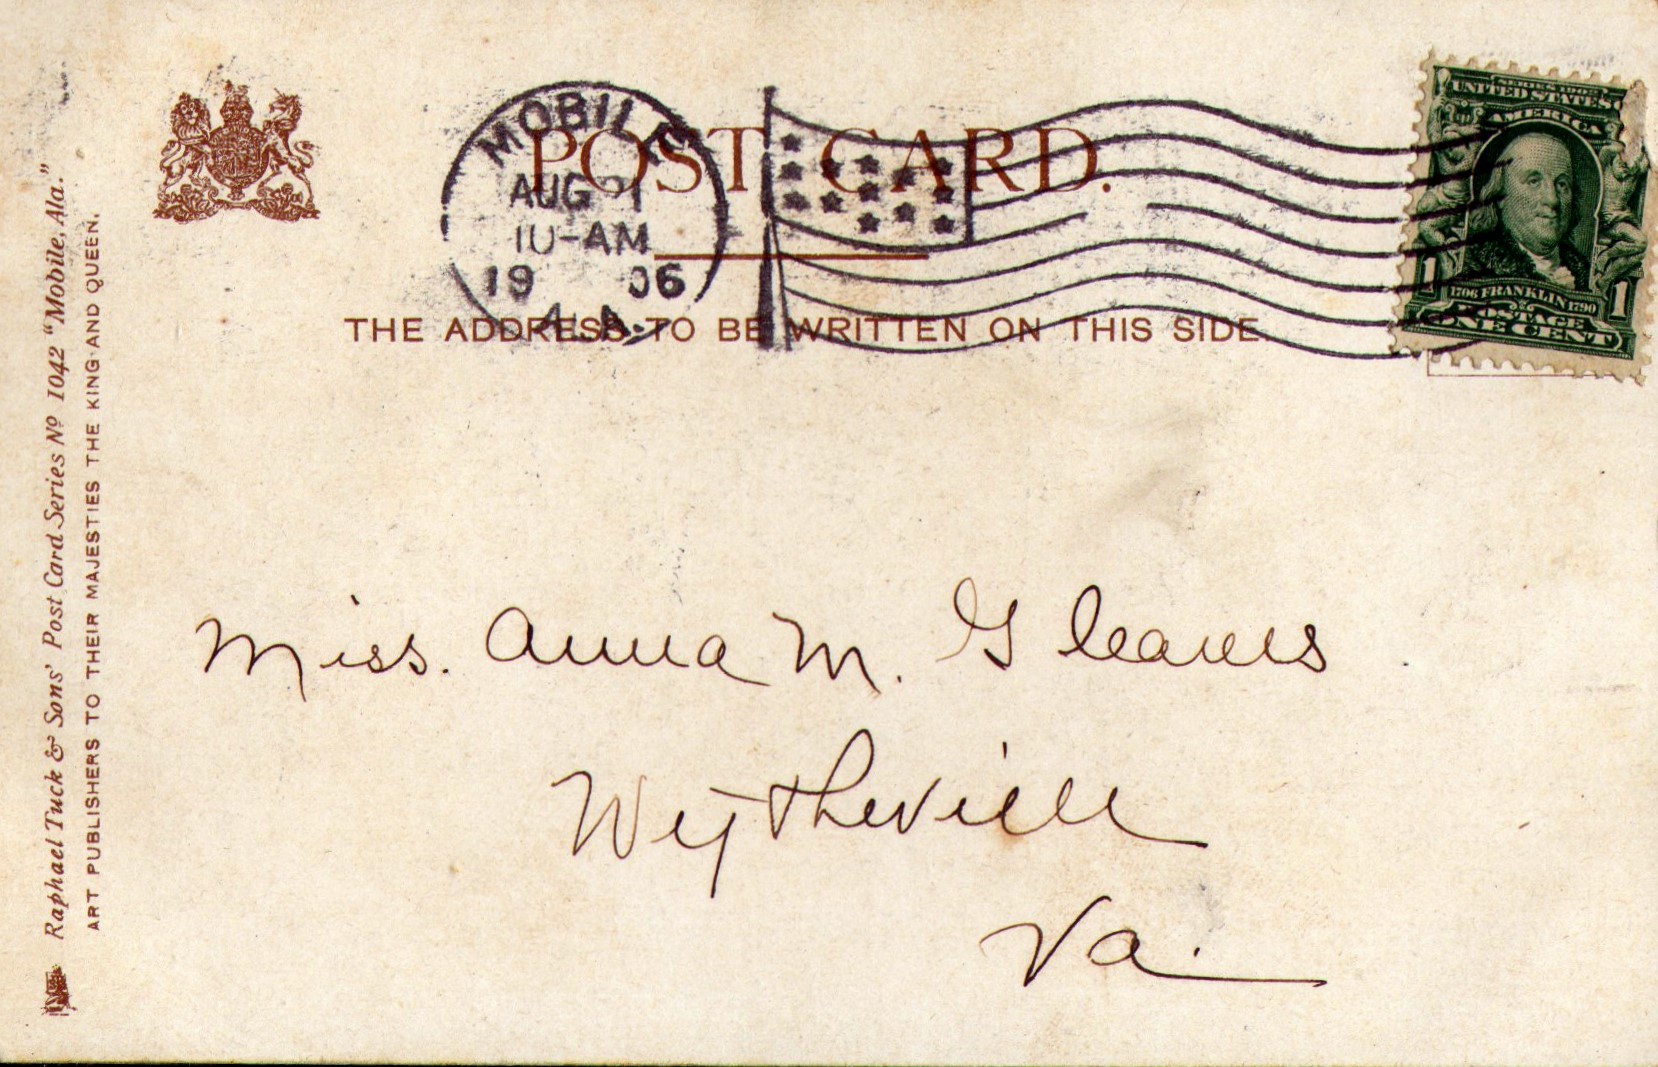 POST CARD.
THE ADDRESS TO BE WRITTEN ON THIS SIDE.
MOBILE
AUG 21
10-AM
1906
ALA.
SERIES 1902
UNITED STATES
AMERICA
1706 FRANKLIN 1790
1 1
POSTAGE
ONE CENT
Raphael Tuck & Sons' Post Card Series Nº 1042 "Mobile, Ala."
ART PUBLISHERS TO THEIR MAJESTIES THE KING AND QUEEN.
Miss. Anna M. Gleaves
Wytheville
Va.